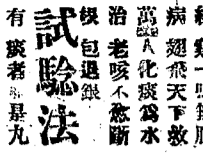 病翅飛天下救
萬人化痰爲水
治老咳不愈斷
根包退銀
試驗法
有痰者是丸